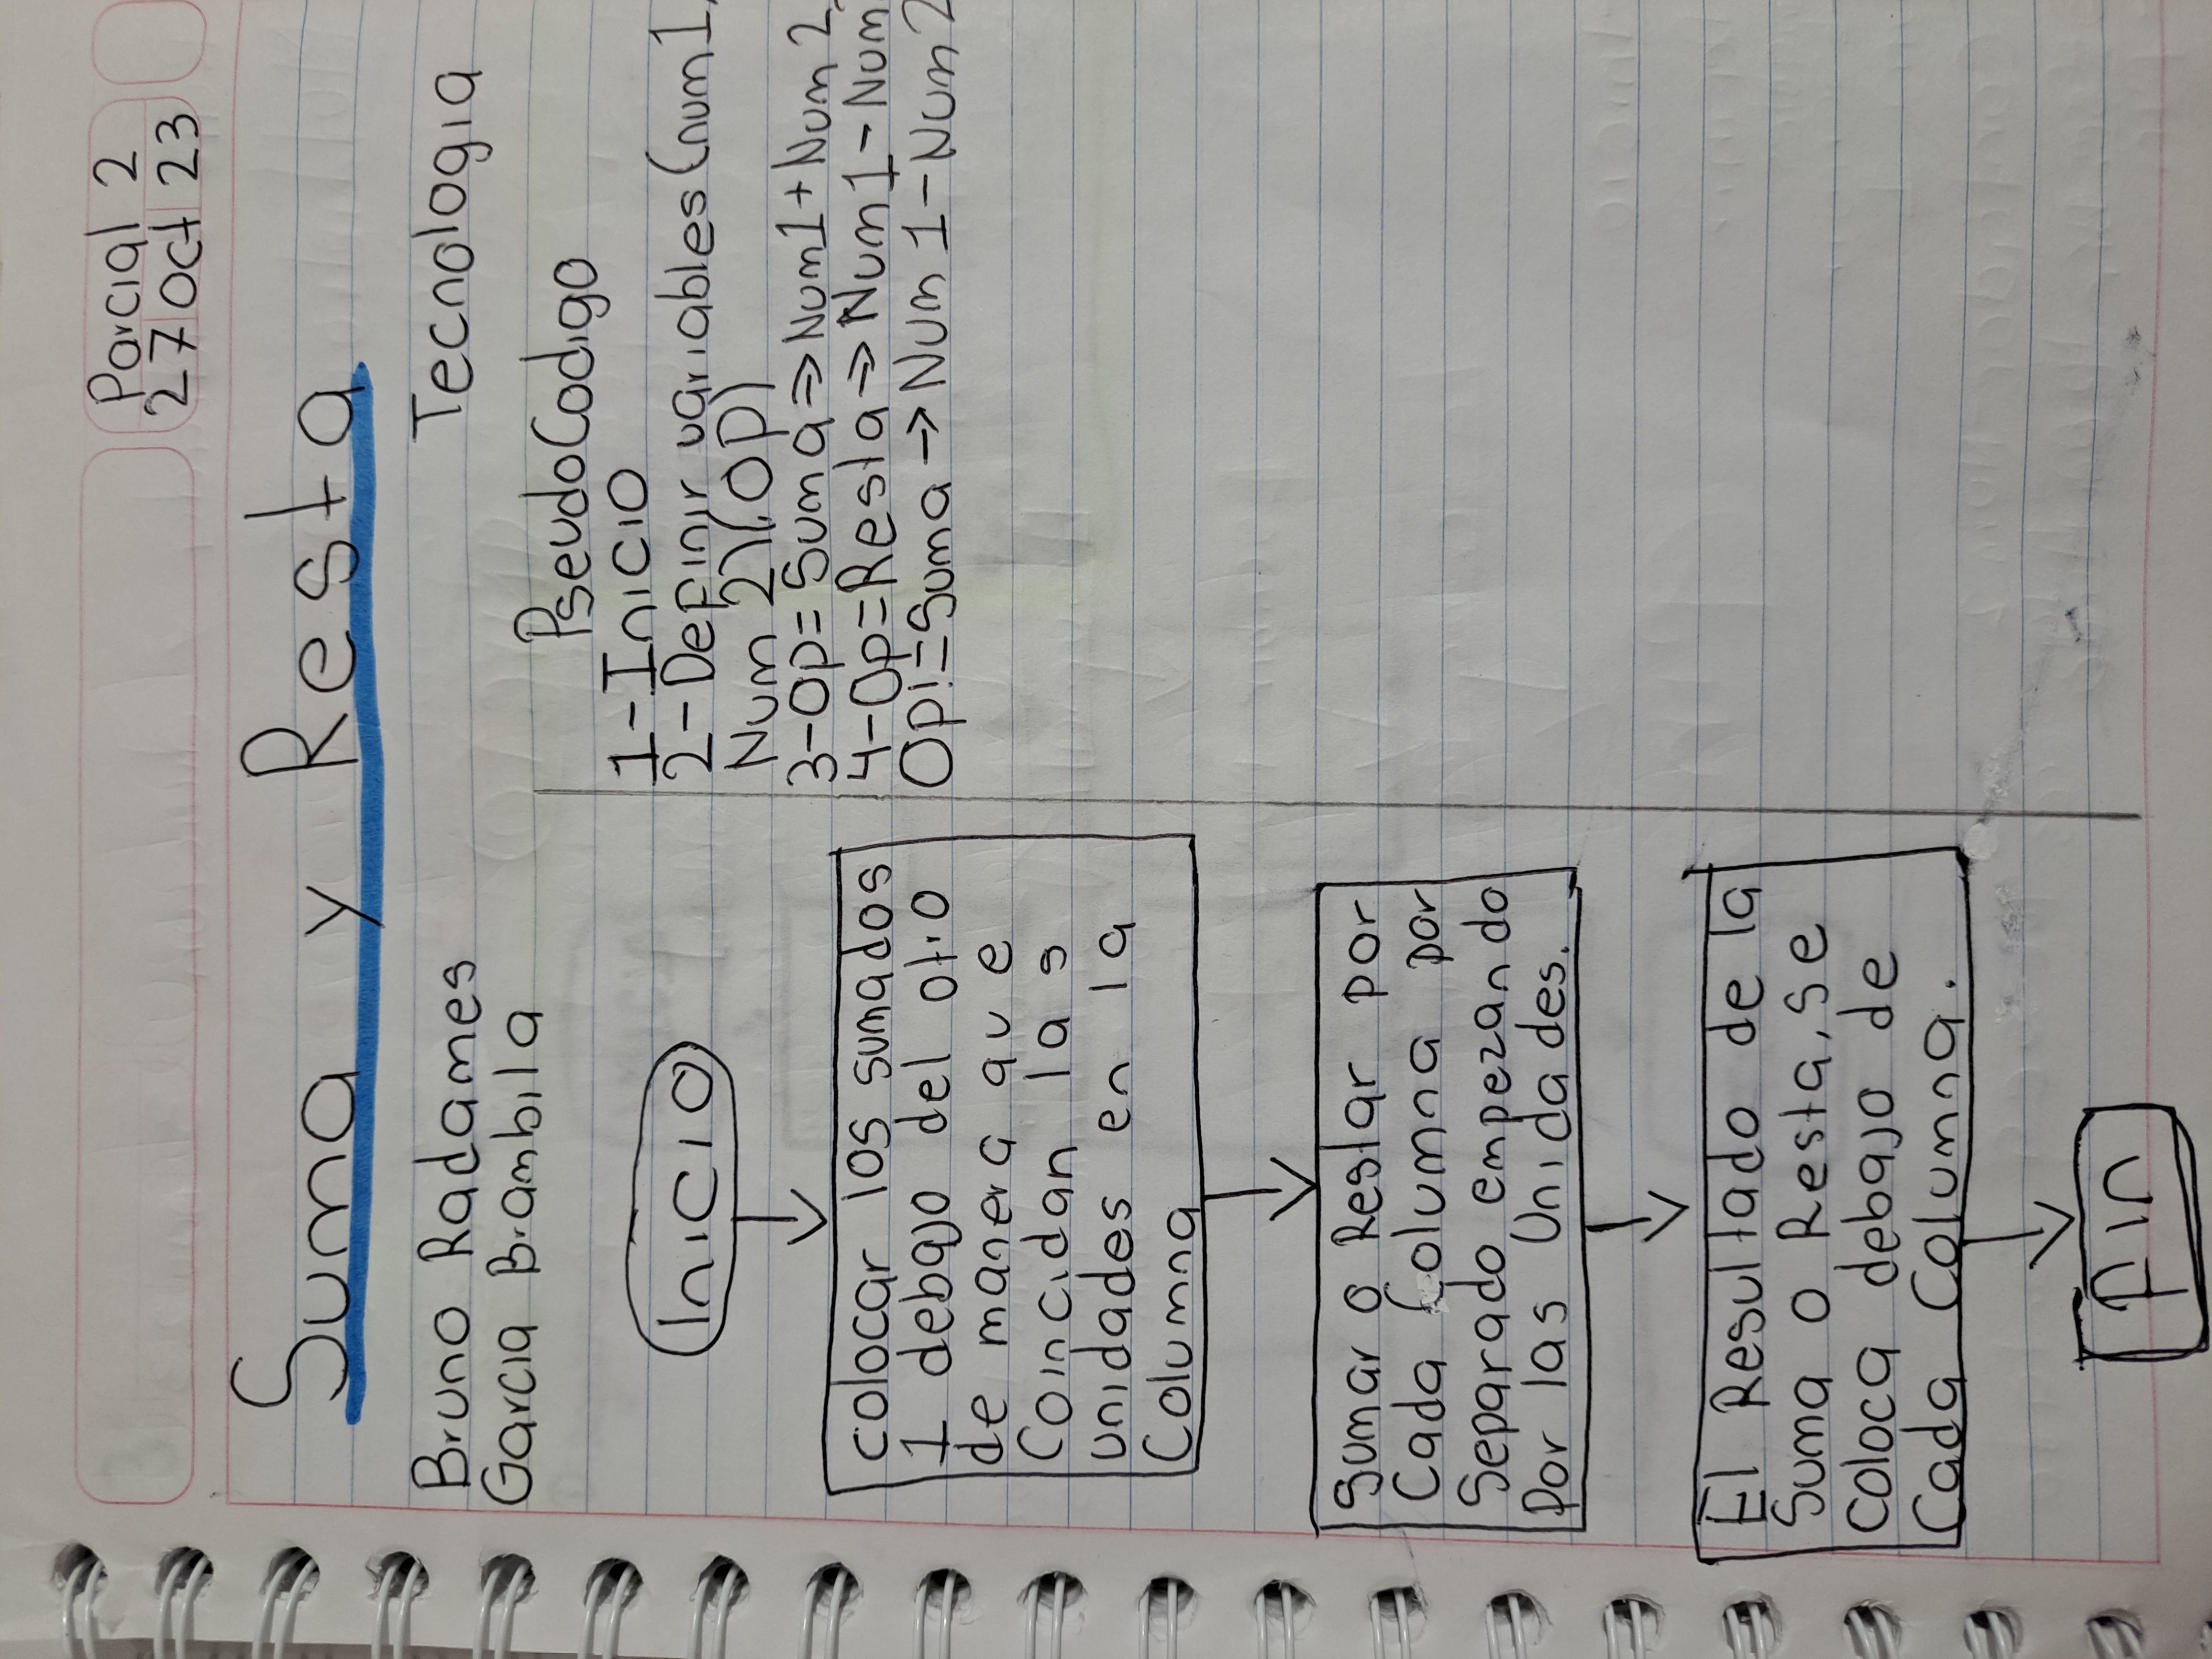 Parcial 2
27 Oct 23
Suma y Resta
Bruno Radames
Garcia Brambila
Tecnologia
Inicio
colocar los sumados
1 debajo del otro
de manera que
Coincidan las
unidades en la
Columna
Sumar o Restar por
Cada Columna por
Separado empezando
Por las Unidades.
El Resultado de la
Suma o Resta, se
coloca debajo de
Cada Columna.
Fin
PseudoCodigo
1-Inicio
2-Definir variables (num1,
Num 2)(.OP)
3-Op=Suma=>Num1+Num2
4-Op=Resta=>Num1-Num
Op!=Suma->Num 1-Num2